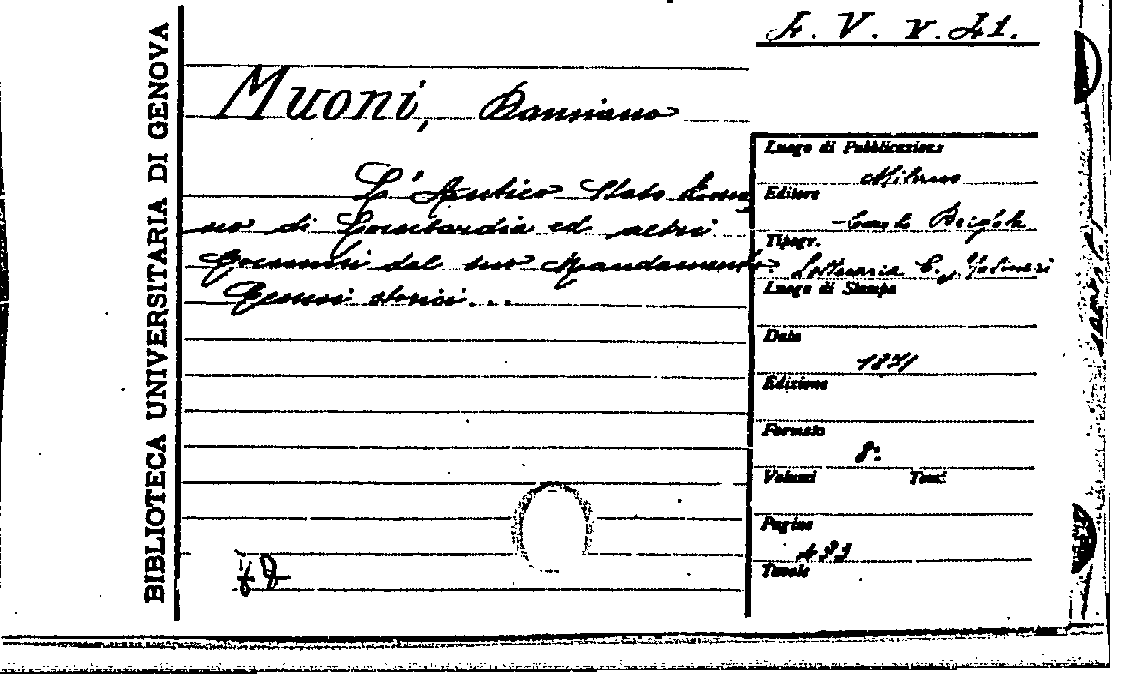 BIBLIOTECA UNIVERSITARIA DI GENOVA
F. V. γ. 41.
Muoni, Damiano
L'Antico Stato Roma
no di Lombardia ed altri
Comuni del suo Mandamento.
Cenni storici...
Luogo di Pubblicazione
Milano
Editore
Carlo Brigola
Tipogr.
C.
Luogo di Stampa
Data
1871
Edizione
Formato
8°
Volumi Tomi
Pagine
Tavole